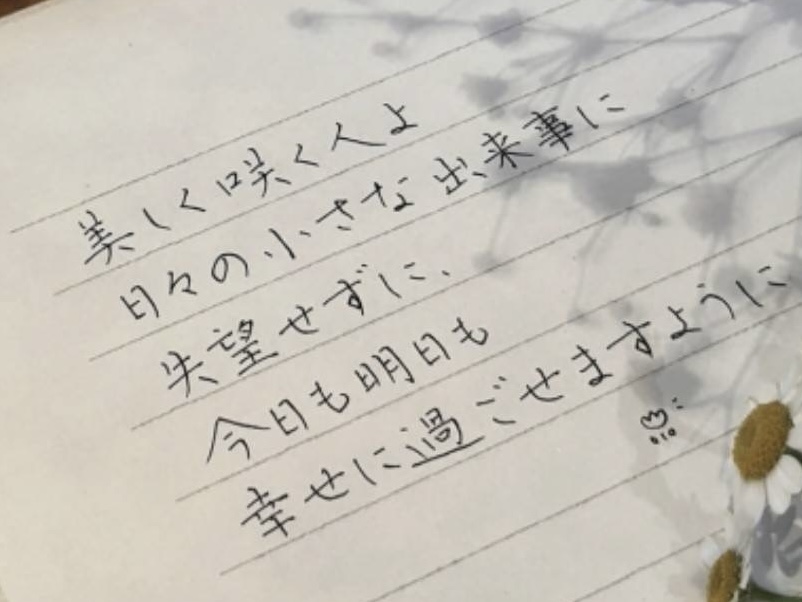 美しく咲く人よ
日々の小さな出来事に
失望せずに、
今日も明日も
幸せに過ごせますように